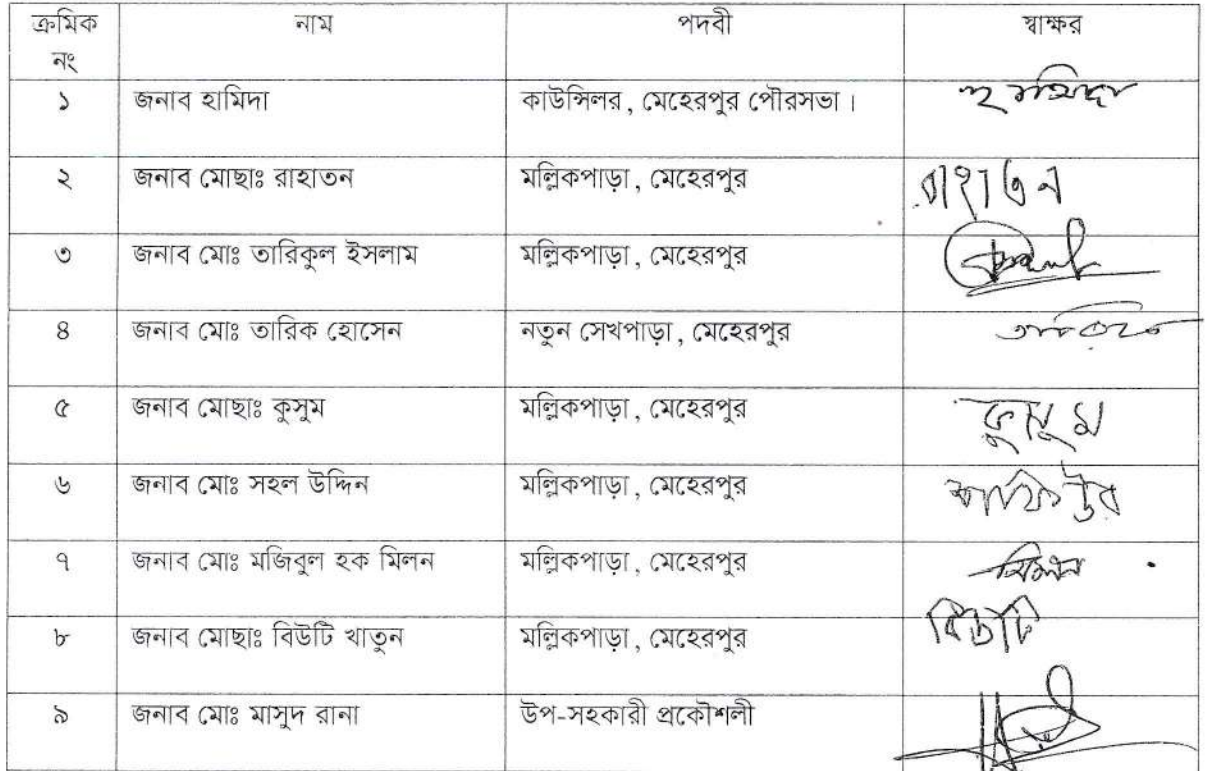 ক্রমিক নং নাম পদবী স্বাক্ষর
১ জনাব হামিদা কাউন্সিলর, মেহেরপুর পৌরসভা। হামিদা
২ জনাব মোছাঃ রাহাতন মল্লিকপাড়া, মেহেরপুর রাহাতন
৩ জনাব মোঃ তারিকুল ইসলাম মল্লিকপাড়া, মেহেরপুর
৪ জনাব মোঃ তারিক হোসেন নতুন সেখপাড়া, মেহেরপুর তারিক
৫ জনাব মোছাঃ কুসুম মল্লিকপাড়া, মেহেরপুর কুসুম
৬ জনাব মোঃ সহল উদ্দিন মল্লিকপাড়া, মেহেরপুর
৭ জনাব মোঃ মজিবুল হক মিলন মল্লিকপাড়া, মেহেরপুর মিলন
৮ জনাব মোছাঃ বিউটি খাতুন মল্লিকপাড়া, মেহেরপুর বিউটি
৯ জনাব মোঃ মাসুদ রানা উপ-সহকারী প্রকৌশলী